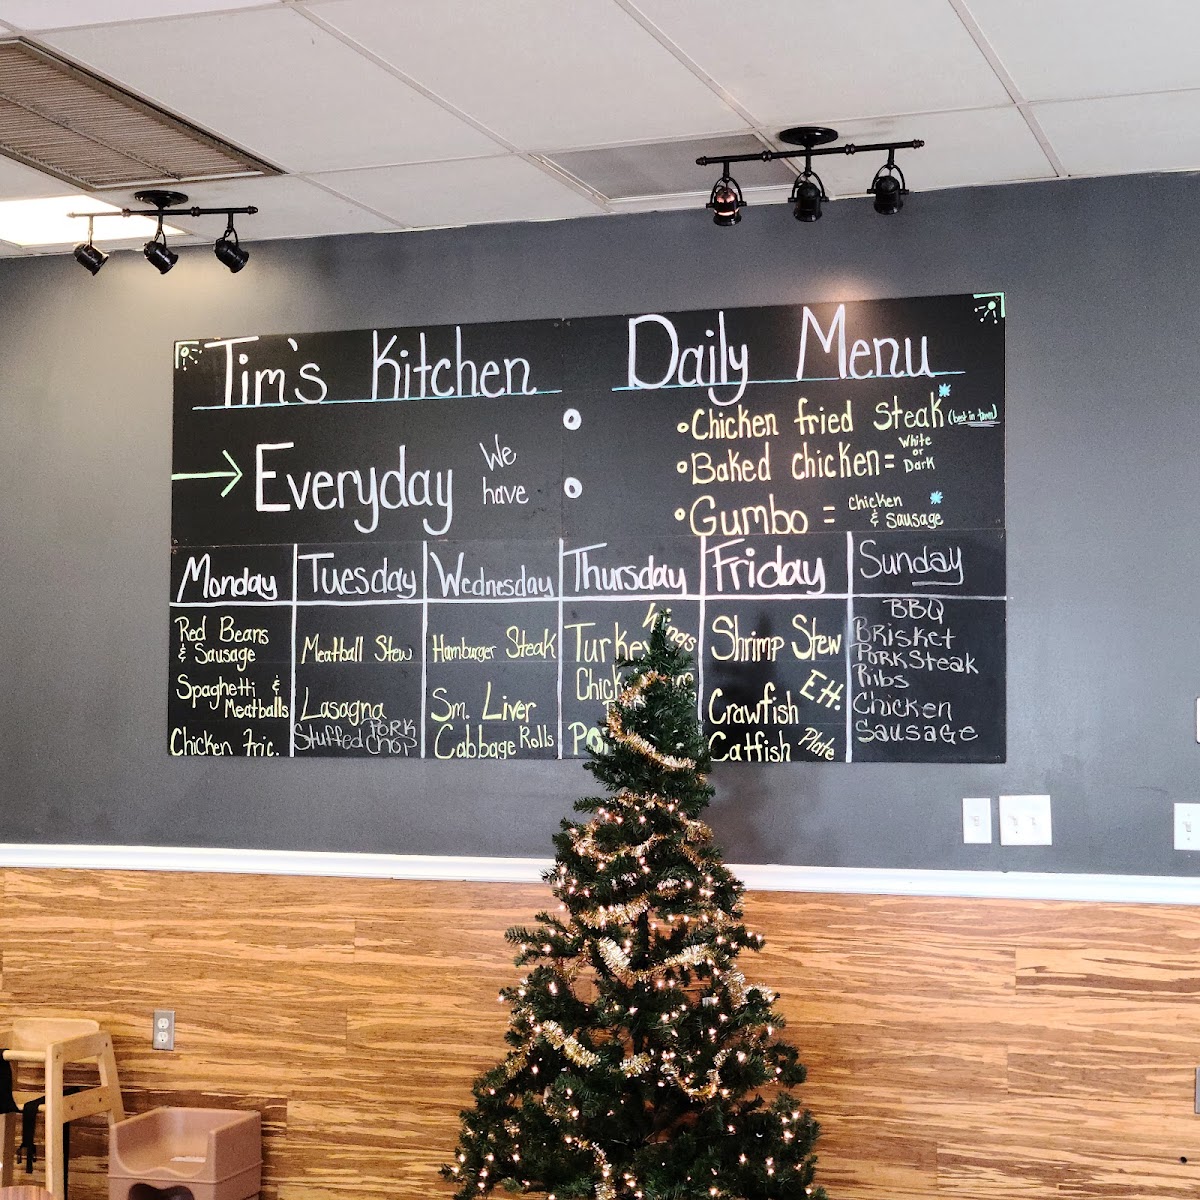 Tim's Kitchen Daily Menu
Everyday We have :
• Chicken fried Steak* (best in town)
• Baked chicken = White or Dark
• Gumbo = chicken & Sausage *
Monday
Red Beans
& Sausage
Spaghetti &
Meatballs
Chicken Fric.
Tuesday
Meatball Stew
Lasagna
Stuffed Pork Chop
Wednesday
Hamburger Steak
Sm. Liver
Cabbage Rolls
Thursday
Turkey Wings
Friday
Shrimp Stew
Crawfish Ett.
Catfish Plate
Sunday
BBQ
Brisket
Pork Steak
Ribs
Chicken
Sausage